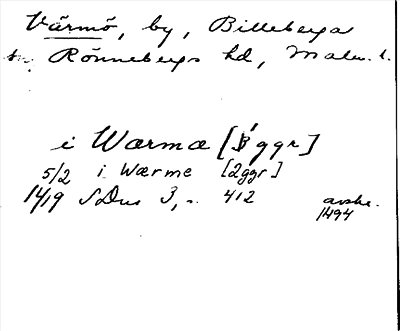 Värmö, by, Billeberga
sn, Rönnebergs hd, Malm. l.
i Wærmæ [3 ggr]
5/2 i Wærme [2 ggr]
1419 SDns 3, s. 412 avskr.
1494